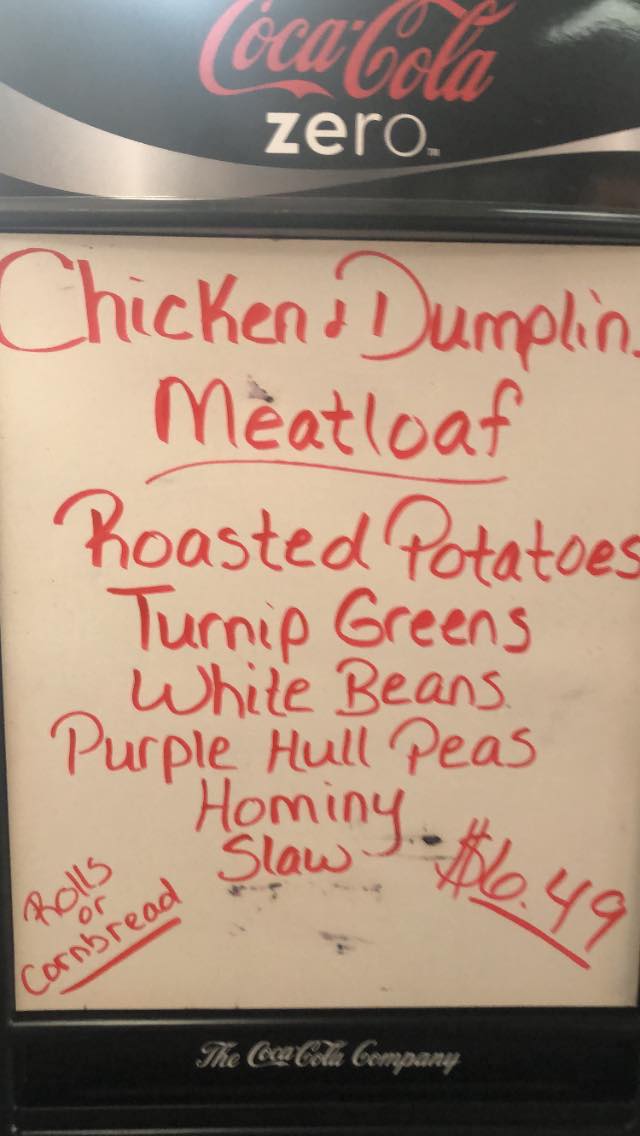 Coca-Cola
zero™
Chicken & Dumplin
Meatloaf
Roasted Potatoes
Turnip Greens
White Beans
Purple Hull Peas
Hominy
Slaw
$6.49
Rolls
or
Cornbread
The Coca-Cola Company